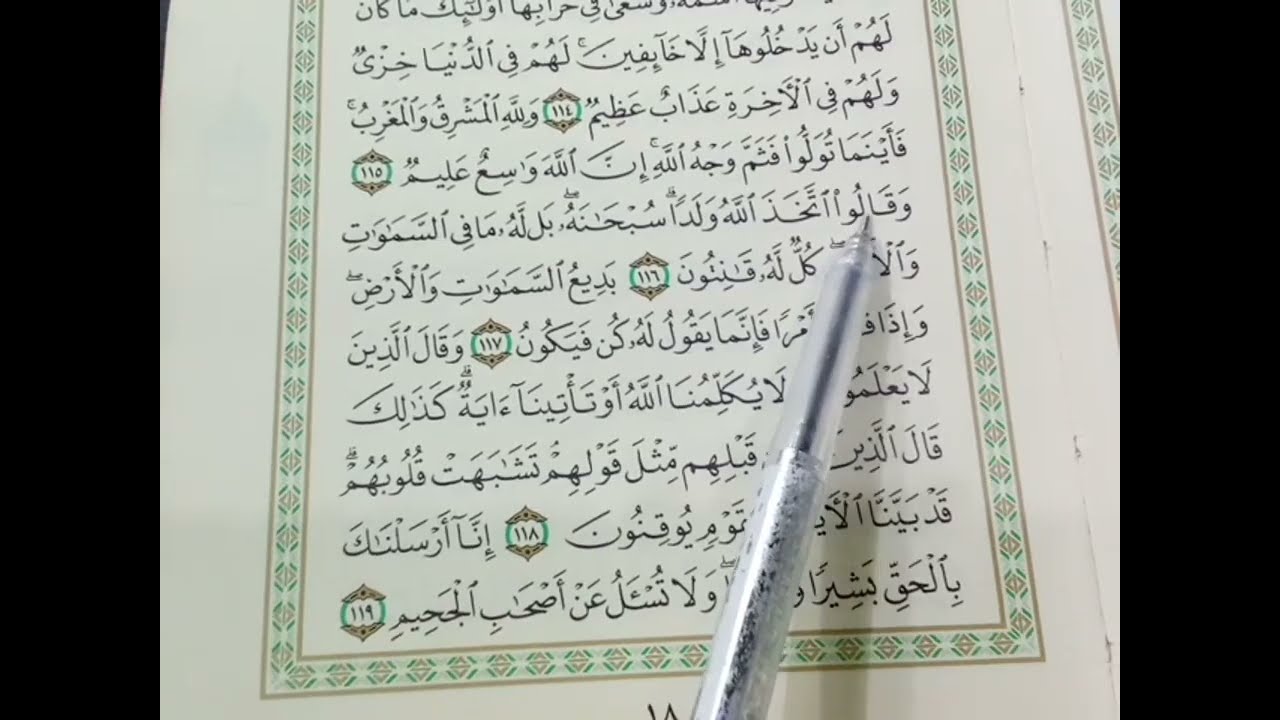 لَهُمْ أَن يَدْخُلُوهَآ إِلَّا خَآئِفِينَ ۚ لَهُمْ فِى ٱلدُّنْيَا خِزْىٌ
وَلَهُمْ فِى ٱلْأَخِرَةِ عَذَابٌ عَظِيمٌ ١١٤ وَلِلَّهِ ٱلْمَشْرِقُ وَٱلْمَغْرِبُ ۚ
فَأَيْنَمَا تُوَلُّوا۟ فَثَمَّ وَجْهُ ٱللَّهِ ۚ إِنَّ ٱللَّهَ وَٰسِعٌ عَلِيمٌ ١١٥
وَقَالُوا۟ ٱتَّخَذَ ٱللَّهُ وَلَدًا ۗ سُبْحَٰنَهُۥ ۖ بَل لَّهُۥ مَا فِى ٱلسَّمَٰوَٰتِ
كُلٌّ لَّهُۥ قَٰنِتُونَ ١١٦ بَدِيعُ ٱلسَّمَٰوَٰتِ وَٱلْأَرْضِ ۖ
وَإِذَا أَمْرًا فَإِنَّمَا يَقُولُ لَهُۥ كُن فَيَكُونُ ١١٧ وَقَالَ ٱلَّذِينَ
لَا يَعْلَمُو لَا يُكَلِّمُنَا ٱللَّهُ أَوْ تَأْتِينَآ ءَايَةٌ ۗ كَذَٰلِكَ
قَالَ ٱلَّذِينَ قَبْلِهِم مِّثْلَ قَوْلِهِمْ ۘ تَشَٰبَهَتْ قُلُوبُهُمْ ۗ
قَدْ بَيَّنَّا ٱلْأَيَ قَوْمٍ يُوقِنُونَ ١١٨ إِنَّآ أَرْسَلْنَٰكَ
بِٱلْحَقِّ بَشِيرًا وَلَا تُسْـَٔلُ عَنْ أَصْحَٰبِ ٱلْجَحِيمِ ١١٩
١٨